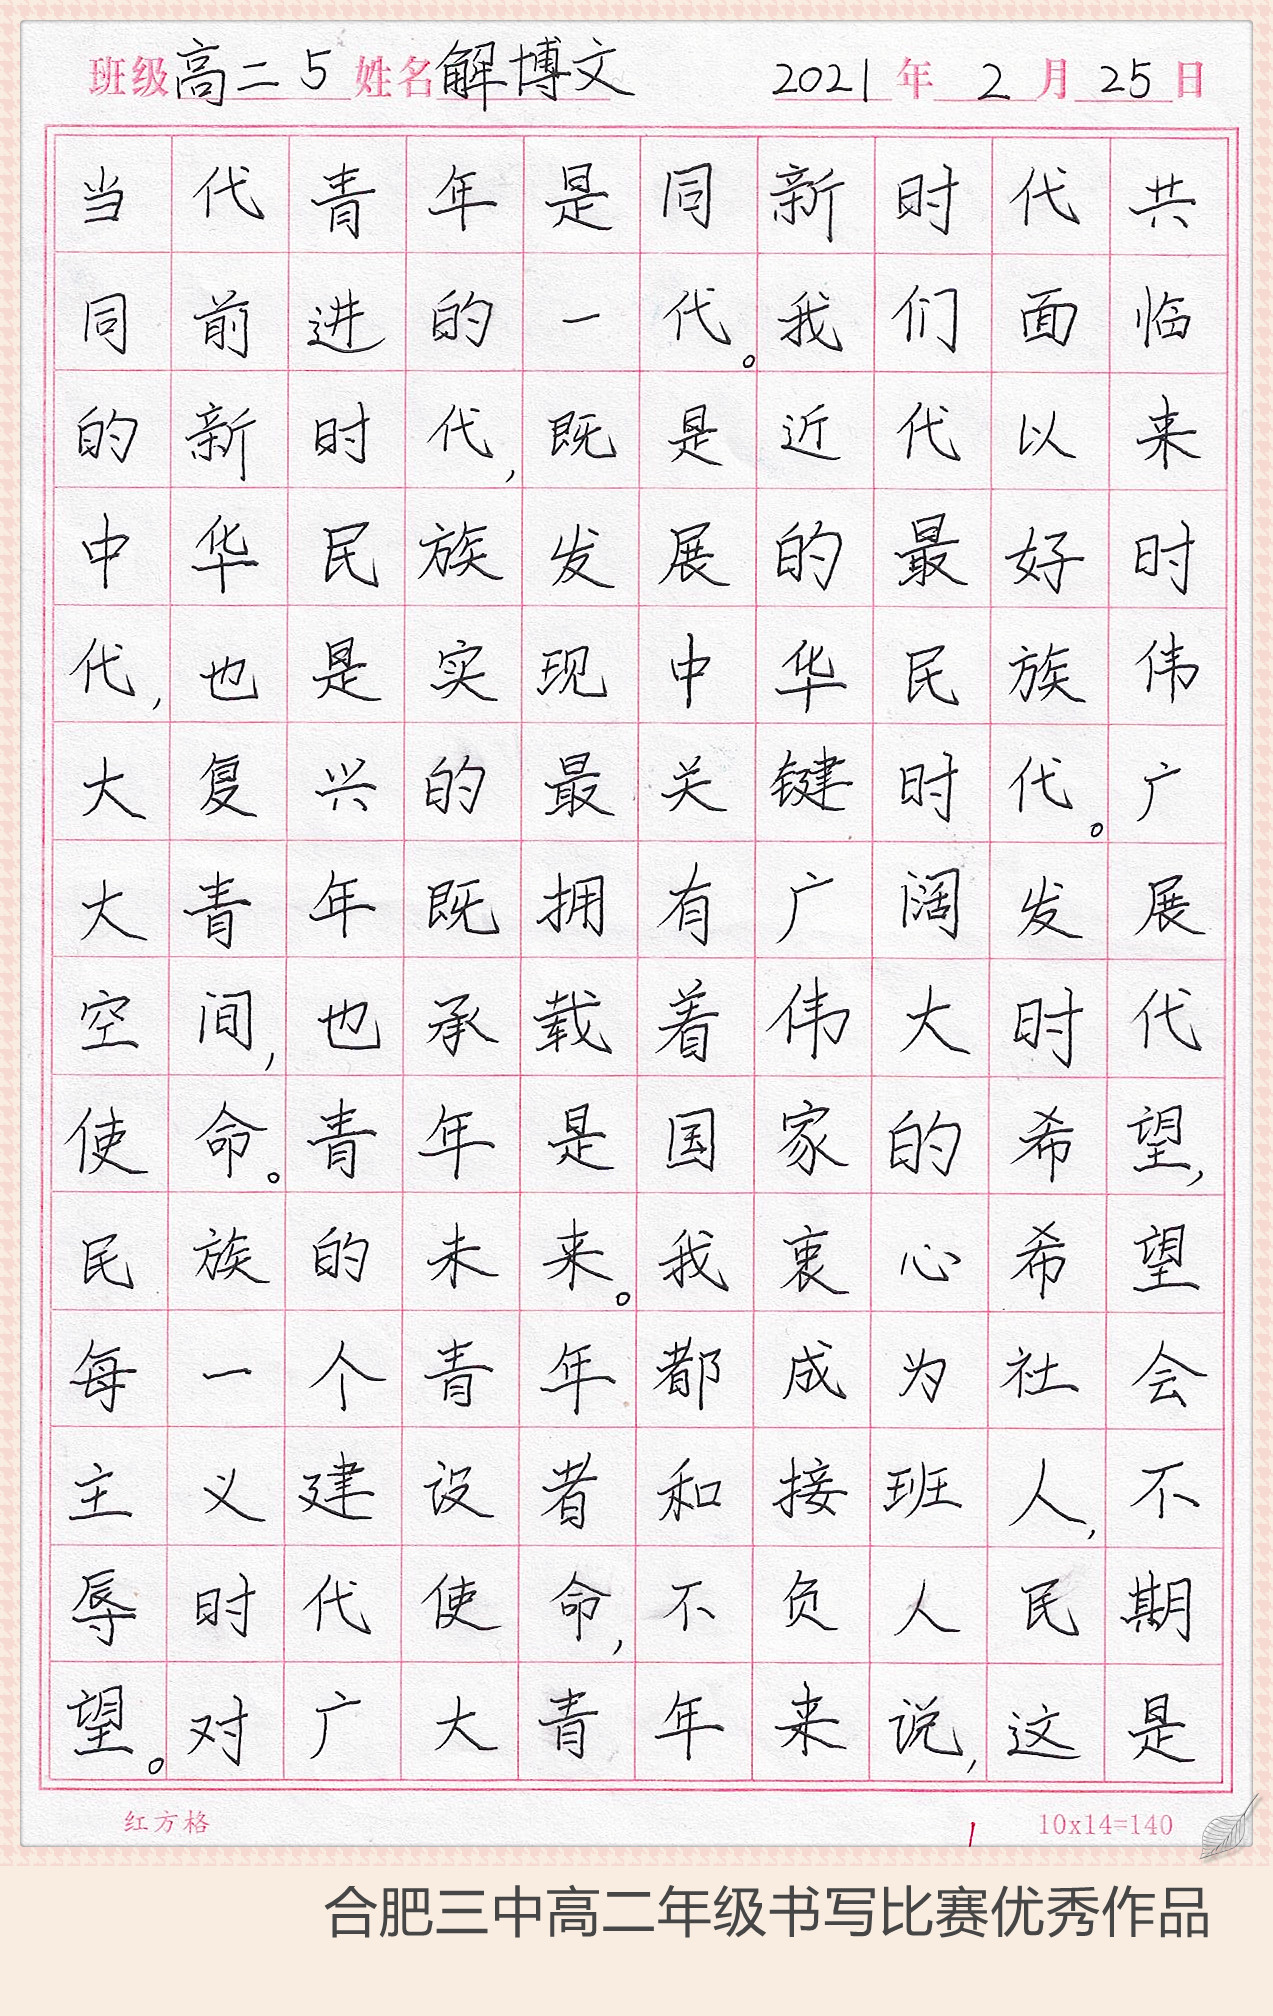 班级高二5 姓名解博文 2021年2月25日
当代青年是同新时代共
同前进的一代。我们面临
的新时代,既是近代以来
中华民族发展的最好时
代,也是实现中华民族伟
大复兴的最关键时代。广
大青年既拥有广阔发展
空间,也承载着伟大时代
使命。青年是国家的希望,
民族的未来。我衷心希望
每一个青年都成为社会
主义建设者和接班人,不
辱时代使命,不负人民期
望。对广大青年来说,这是
红方格 1 10x14=140
合肥三中高二年级书写比赛优秀作品